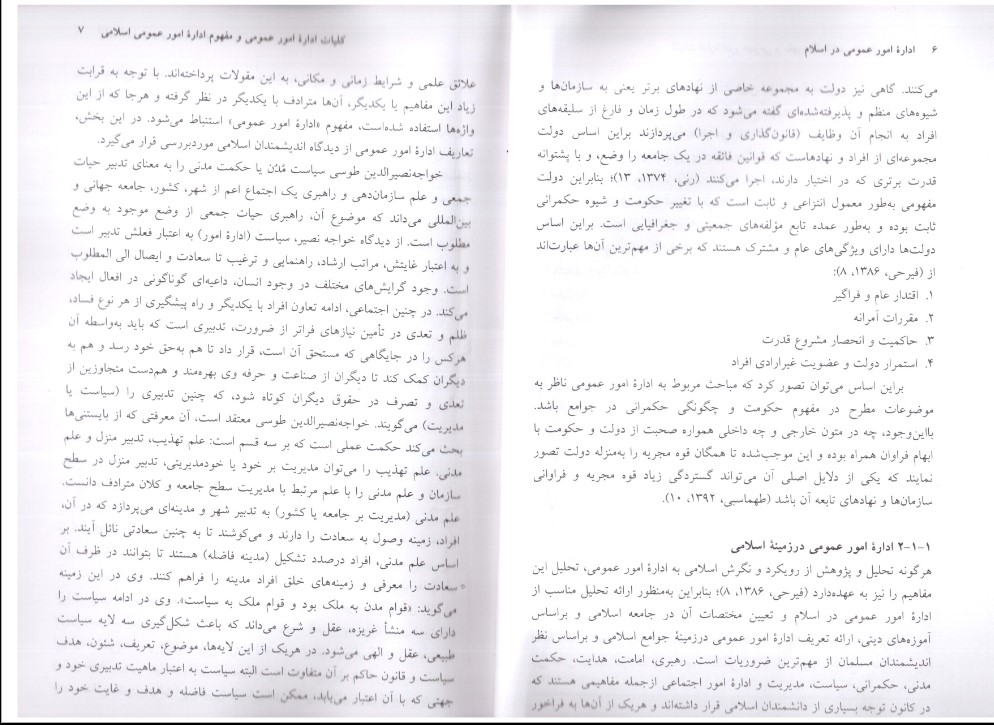 ۶ ادارهٔ امور عمومی در اسلام
می‌کنند. گاهی نیز دولت به مجموعه خاصی از نهادهای برتر یعنی به سازمان‌ها و
شیوه‌های منظم و پذیرفته‌شده‌ای گفته می‌شود که در طول زمان و فارغ از سلیقه‌های
افراد به انجام آن وظایف (قانون‌گذاری و اجرا) می‌پردازند براین اساس دولت
مجموعه‌ای از افراد و نهادهاست که قوانین فائقه در یک جامعه را وضع، و با پشتوانه
قدرت برتری که در اختیار دارند، اجرا می‌کنند (رنی، ۱۳۷۴، ۱۳)؛ بنابراین دولت
مفهومی به‌طور معمول انتزاعی و ثابت است که با تغییر حکومت و شیوه حکمرانی
ثابت بوده و به‌طور عمده تابع مؤلفه‌های جمعیتی و جغرافیایی است. براین اساس
دولت‌ها دارای ویژگی‌های عام و مشترک هستند که برخی از مهم‌ترین آن‌ها عبارت‌اند
از (فیرحی، ۱۳۸۶، ۸):
۱. اقتدار عام و فراگیر
۲. مقررات آمرانه
۳. حاکمیت و انحصار مشروع قدرت
۴. استمرار دولت و عضویت غیرارادی افراد
براین اساس می‌توان تصور کرد که مباحث مربوط به ادارهٔ امور عمومی ناظر به
موضوعات مطرح در مفهوم حکومت و چگونگی حکمرانی در جوامع باشد.
بااین‌وجود، چه در متون خارجی و چه داخلی همواره صحبت از دولت و حکومت با
ابهام فراوان همراه بوده و این موجب‌شده تا همگان قوه مجریه را به‌منزله دولت تصور
نمایند که یکی از دلایل اصلی آن می‌تواند گستردگی زیاد قوه مجریه و فراوانی
سازمان‌ها و نهادهای تابعه آن باشد (طهماسبی، ۱۳۹۲، ۱۰).
۲-۱-۱ ادارهٔ امور عمومی درزمینهٔ اسلامی
هرگونه تحلیل و پژوهش از رویکرد و نگرش اسلامی به ادارهٔ امور عمومی، تحلیل این
مفاهیم را نیز به عهده‌دارد (فیرحی، ۱۳۸۶، ۸)؛ بنابراین به‌منظور ارائه تحلیل مناسب از
ادارهٔ امور عمومی در اسلام و تعیین مختصات آن در جامعه اسلامی و براساس
آموزه‌های دینی، ارائه تعریف ادارهٔ امور عمومی درزمینهٔ جوامع اسلامی و براساس نظر
اندیشمندان مسلمان از مهم‌ترین ضروریات است. رهبری، امامت، هدایت، حکمت
مدنی، حکمرانی، سیاست، مدیریت و ادارهٔ امور اجتماعی ازجمله مفاهیمی هستند که
در کانون توجه بسیاری از دانشمندان اسلامی قرار داشته‌اند و هریک از آن‌ها به فراخور
کلیات ادارهٔ امور عمومی و مفهوم ادارهٔ امور عمومی اسلامی ۷
علائق علمی و شرایط زمانی و مکانی، به این مقولات پرداخته‌اند. با توجه به قرابت
زیاد این مفاهیم با یکدیگر، آن‌ها مترادف با یکدیگر در نظر گرفته و هرجا که از این
واژه‌ها استفاده شده‌است، مفهوم «ادارهٔ امور عمومی» استنباط می‌شود. در این بخش،
تعاریف ادارهٔ امور عمومی از دیدگاه اندیشمندان اسلامی موردبررسی قرار می‌گیرد.
خواجه‌نصیرالدین طوسی سیاست مُدُن یا حکمت مدنی را به معنای تدبیر حیات
جمعی و علم سازمان‌دهی و راهبری یک اجتماع اعم از شهر، کشور، جامعه جهانی و
بین‌المللی می‌داند که موضوع آن، راهبری حیات جمعی از وضع موجود به وضع
مطلوب است. از دیدگاه خواجه نصیر، سیاست (ادارهٔ امور) به اعتبار فعلش تدبیر است
و به اعتبار غایتش، مراتب ارشاد، راهنمایی و ترغیب تا سعادت و ایصال الی المطلوب
است. وجود گرایش‌های مختلف در وجود انسان، داعیه‌ای گوناگونی در افعال ایجاد
می‌کند. در چنین اجتماعی، ادامه تعاون افراد با یکدیگر و راه پیشگیری از هر نوع فساد،
ظلم و تعدی در تأمین نیازهای فراتر از ضرورت، تدبیری است که باید به‌واسطه آن
هرکس را در جایگاهی که مستحق آن است، قرار داد تا هم به‌حق خود رسد و هم به
دیگران کمک کند تا دیگران از صناعت و حرفه وی بهره‌مند و هم‌دست متجاوزین از
تعدی و تصرف در حقوق دیگران کوتاه شود، که چنین تدبیری را (سیاست یا
مدیریت) می‌گویند. خواجه‌نصیرالدین طوسی معتقد است، آن معرفتی که از بایستنی‌ها
بحث می‌کند حکمت عملی است که بر سه قسم است: علم تهذیب، تدبیر منزل و علم
مدنی. علم تهذیب را می‌توان مدیریت بر خود یا خودمدیریتی، تدبیر منزل در سطح
سازمان و علم مدنی را با علم مرتبط با مدیریت سطح جامعه و کلان مترادف دانست.
علم مدنی (مدیریت بر جامعه یا کشور) به تدبیر شهر و مدینه‌ای می‌پردازد که در آن،
افراد، زمینه وصول به سعادت را دارند و می‌کوشند تا به چنین سعادتی نائل آیند. بر
اساس علم مدنی، افراد درصدد تشکیل (مدینه فاضله) هستند تا بتوانند در ظرف آن
سعادت را معرفی و زمینه‌های خلق افراد مدینه را فراهم کنند. وی در این زمینه
می‌گوید: «قوام مدن به ملک بود و قوام ملک به سیاست». وی در ادامه سیاست را
دارای سه منشأ غریزه، عقل و شرع می‌داند که باعث شکل‌گیری سه لایه سیاست
طبیعی، عقل و الهی می‌شود. در هریک از این لایه‌ها، موضوع، تعریف، شئون، هدف
سیاست و قانون حاکم بر آن متفاوت است البته سیاست به اعتبار ماهیت تدبیری خود و
جهتی که با آن اعتبار می‌یابد، ممکن است سیاست فاضله و هدف و غایت خود را